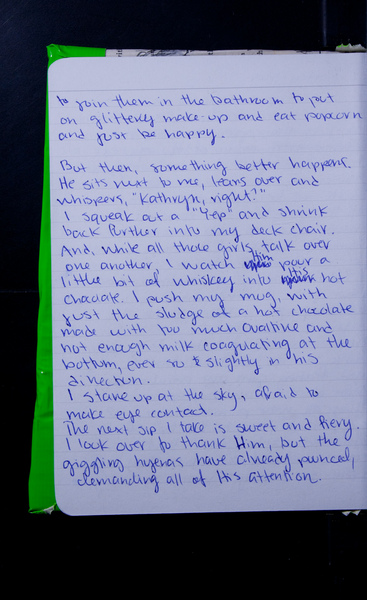 to join them in the bathroom to put
on glittery make-up and eat popcorn
and just be happy.
But then, something better happens.
He sits next to me, leans over and
whispers, "Kathryn, right?"
I squeak out a "Yep" and shrink
back further into my deck chair.
And, while all those girls talk over
one another, I watch Him pour a
little bit of whiskey into His hot
chocolate. I push my mug, with
just the sludge of a hot chocolate
made with too much ovaltine and
not enough milk coagulating at the
bottom, ever so slightly in his
direction.
I stare up at the sky, afraid to
make eye contact.
The next sip I take is sweet and fiery.
I look over to thank Him, but the
giggling hyenas have already pounced,
demanding all of His attention.